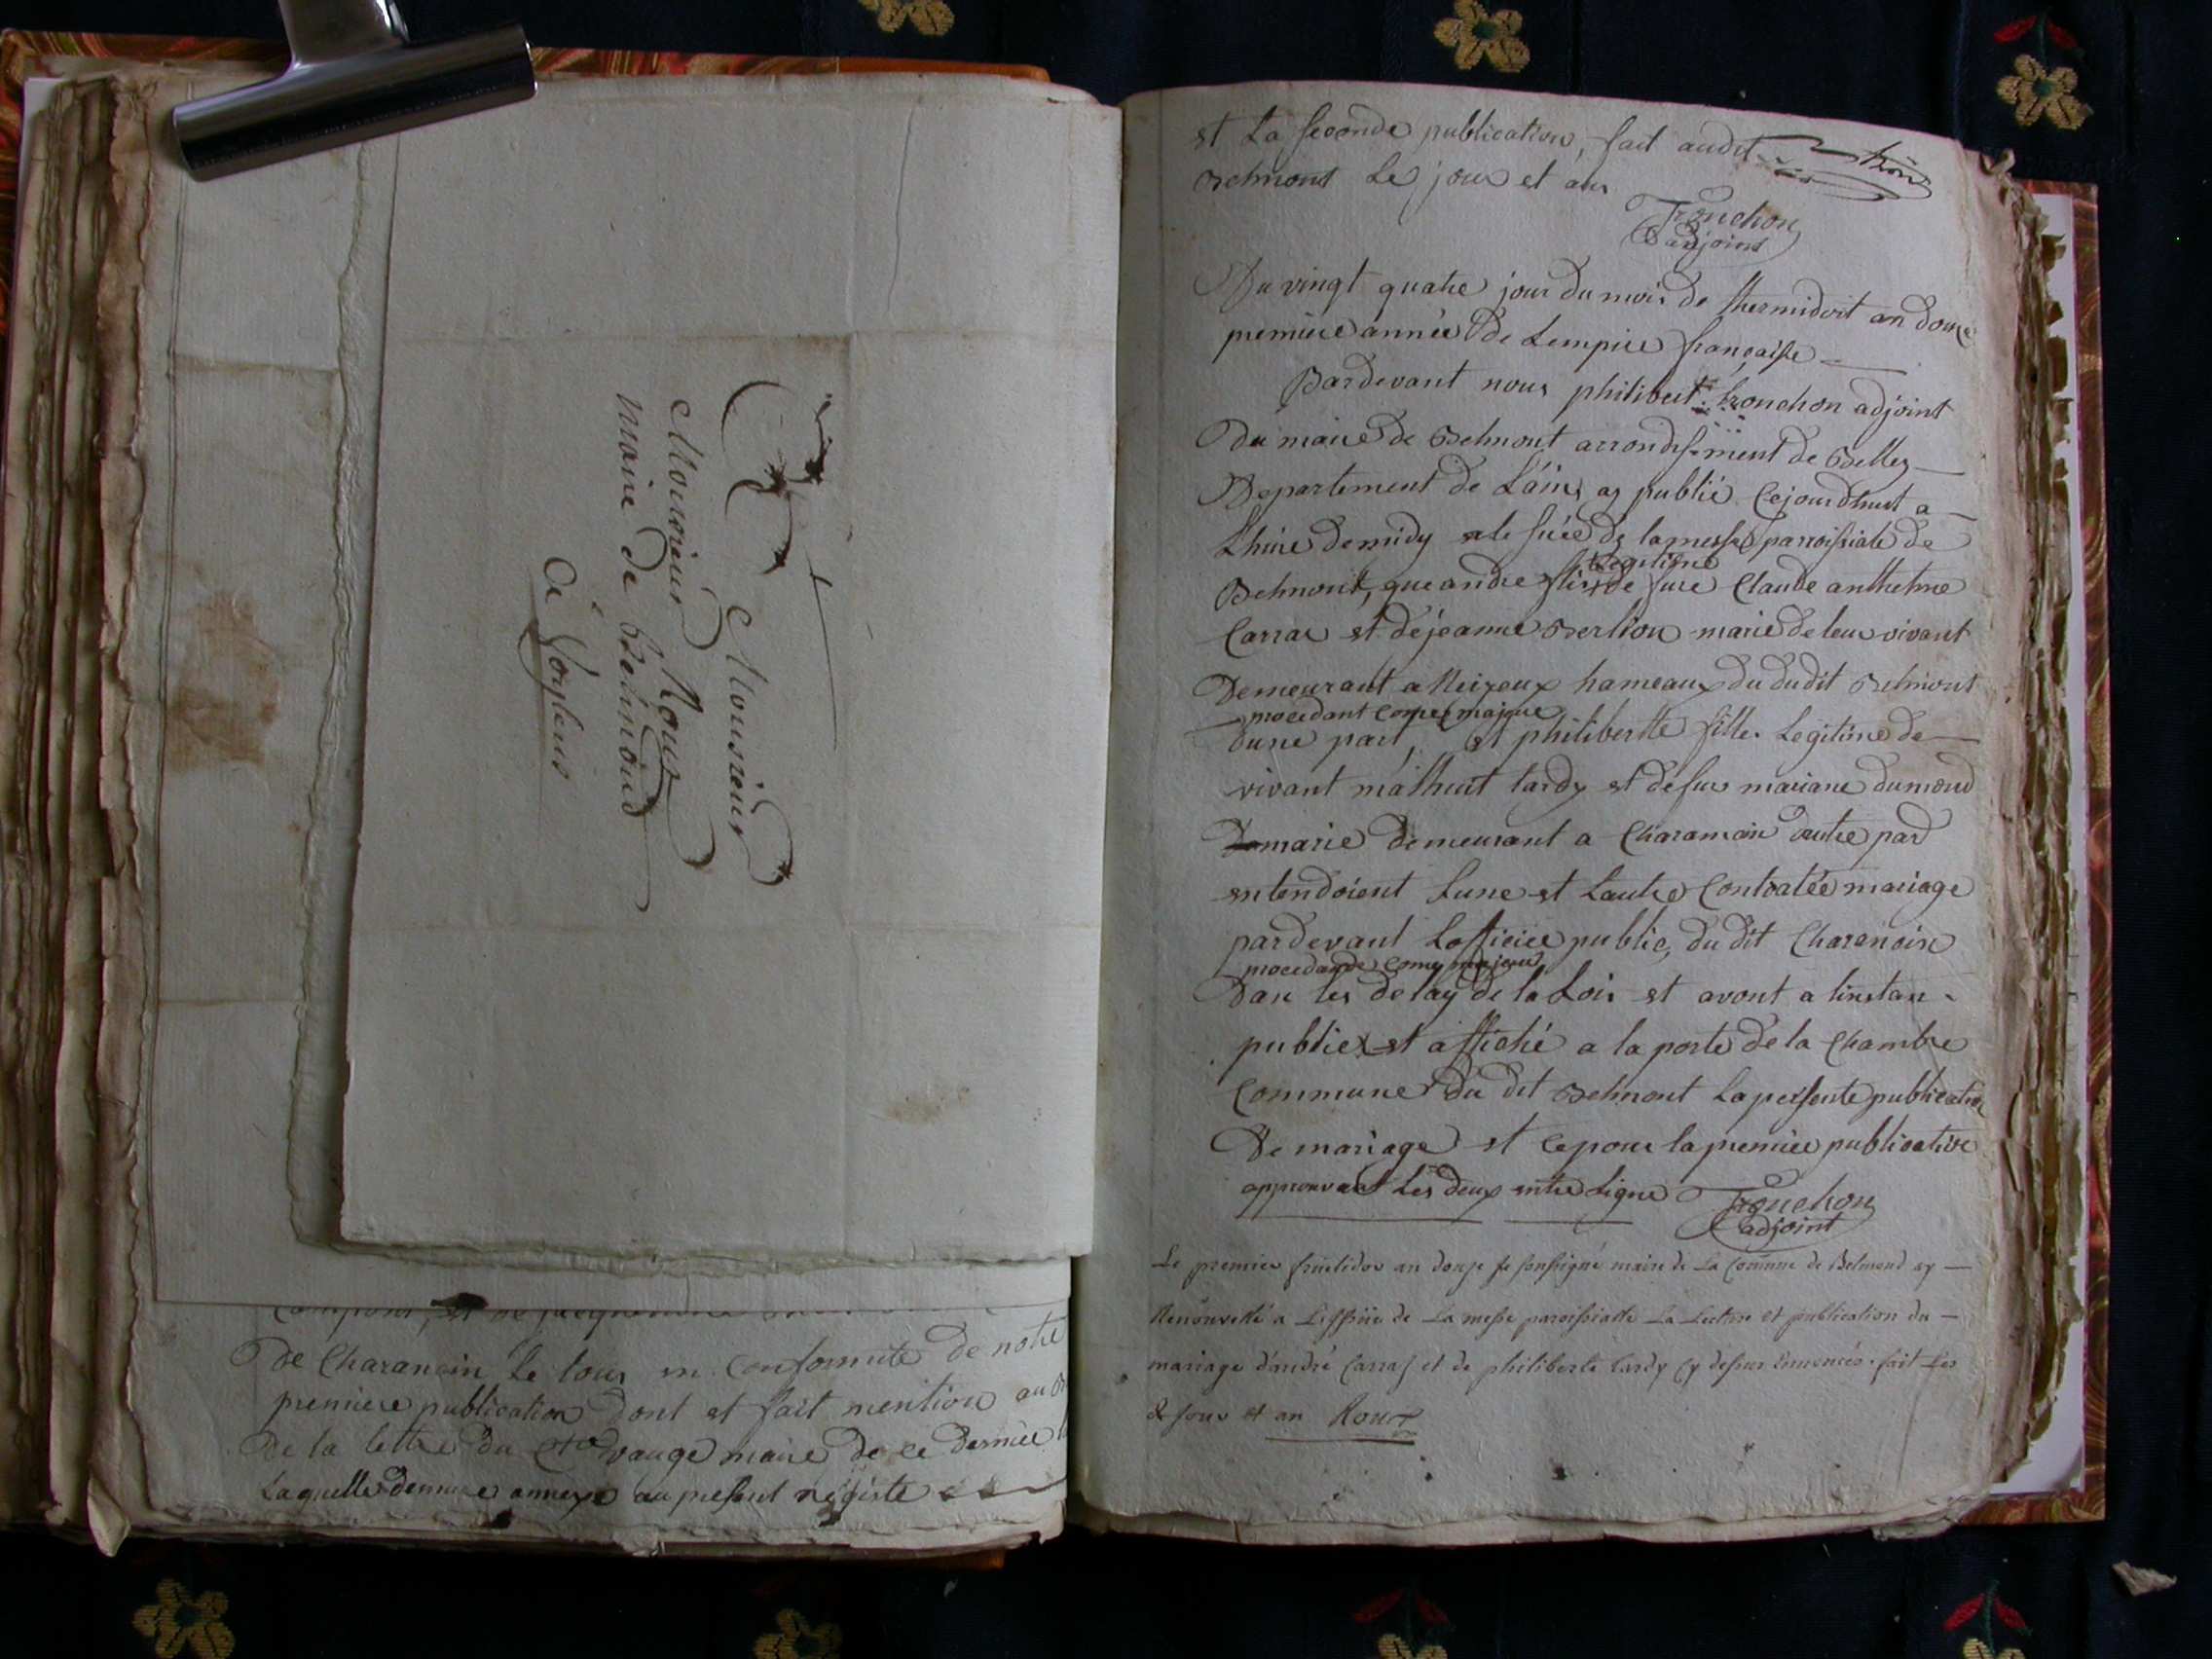 A
Monsieur
Monsieur Roux
maire de belmond
A
de Charancin le tout en Conformité de notre
premiere publication dont et fait mention au
de la lettre du maire de ce dernie
Laquelle demure annexe au present registe
et La seconde publication, fait audit
Belmont Le jour et an
Tronchon
adjoint
Du vingt quatre jour du mois de thermidort an douze
premiere année de Lempire française
Pardevant nous philibert tronchon adjoint
du maire de Belmont arrondissement de Belley
Departement de Lain, ay publié Cejourdhuit a
Lheure de midy de la messe parroissiale de
legitime
Belmont, que andre fils de fue Claude anthelme
Carraz et de jeanne Berlion marie de leur vivant
Demeurant a hameaux du dudit Belmont
procedant come majeure
dune part, et philibertte fille Legitime de
vivant mathieut tardy et de fue mariane dumond
marie demeurant a Charancin dautre pard
entendoient Lune et Lautre Contratée mariage
pardevant Lofficiee public, du dit Charencin
procedande come majeur
Dan les delay de la Loi et avont a linstan
publiex et affiché a la porte de la Chambre
Commune du dit Belmont La presente publication
De mariage et ce pour la premiere publication
approuvant Les deux entre Ligne
Tronchon
adjoint
Le premier fructidor an douze je soussigné maire de La Commune de Belmond ay
Renouvellé a de La messe paroissialle La Lecture et publication du
mariage d'andré Carraz et de philiberte tardy Cy dessus fait Les
d. jour et an Roux